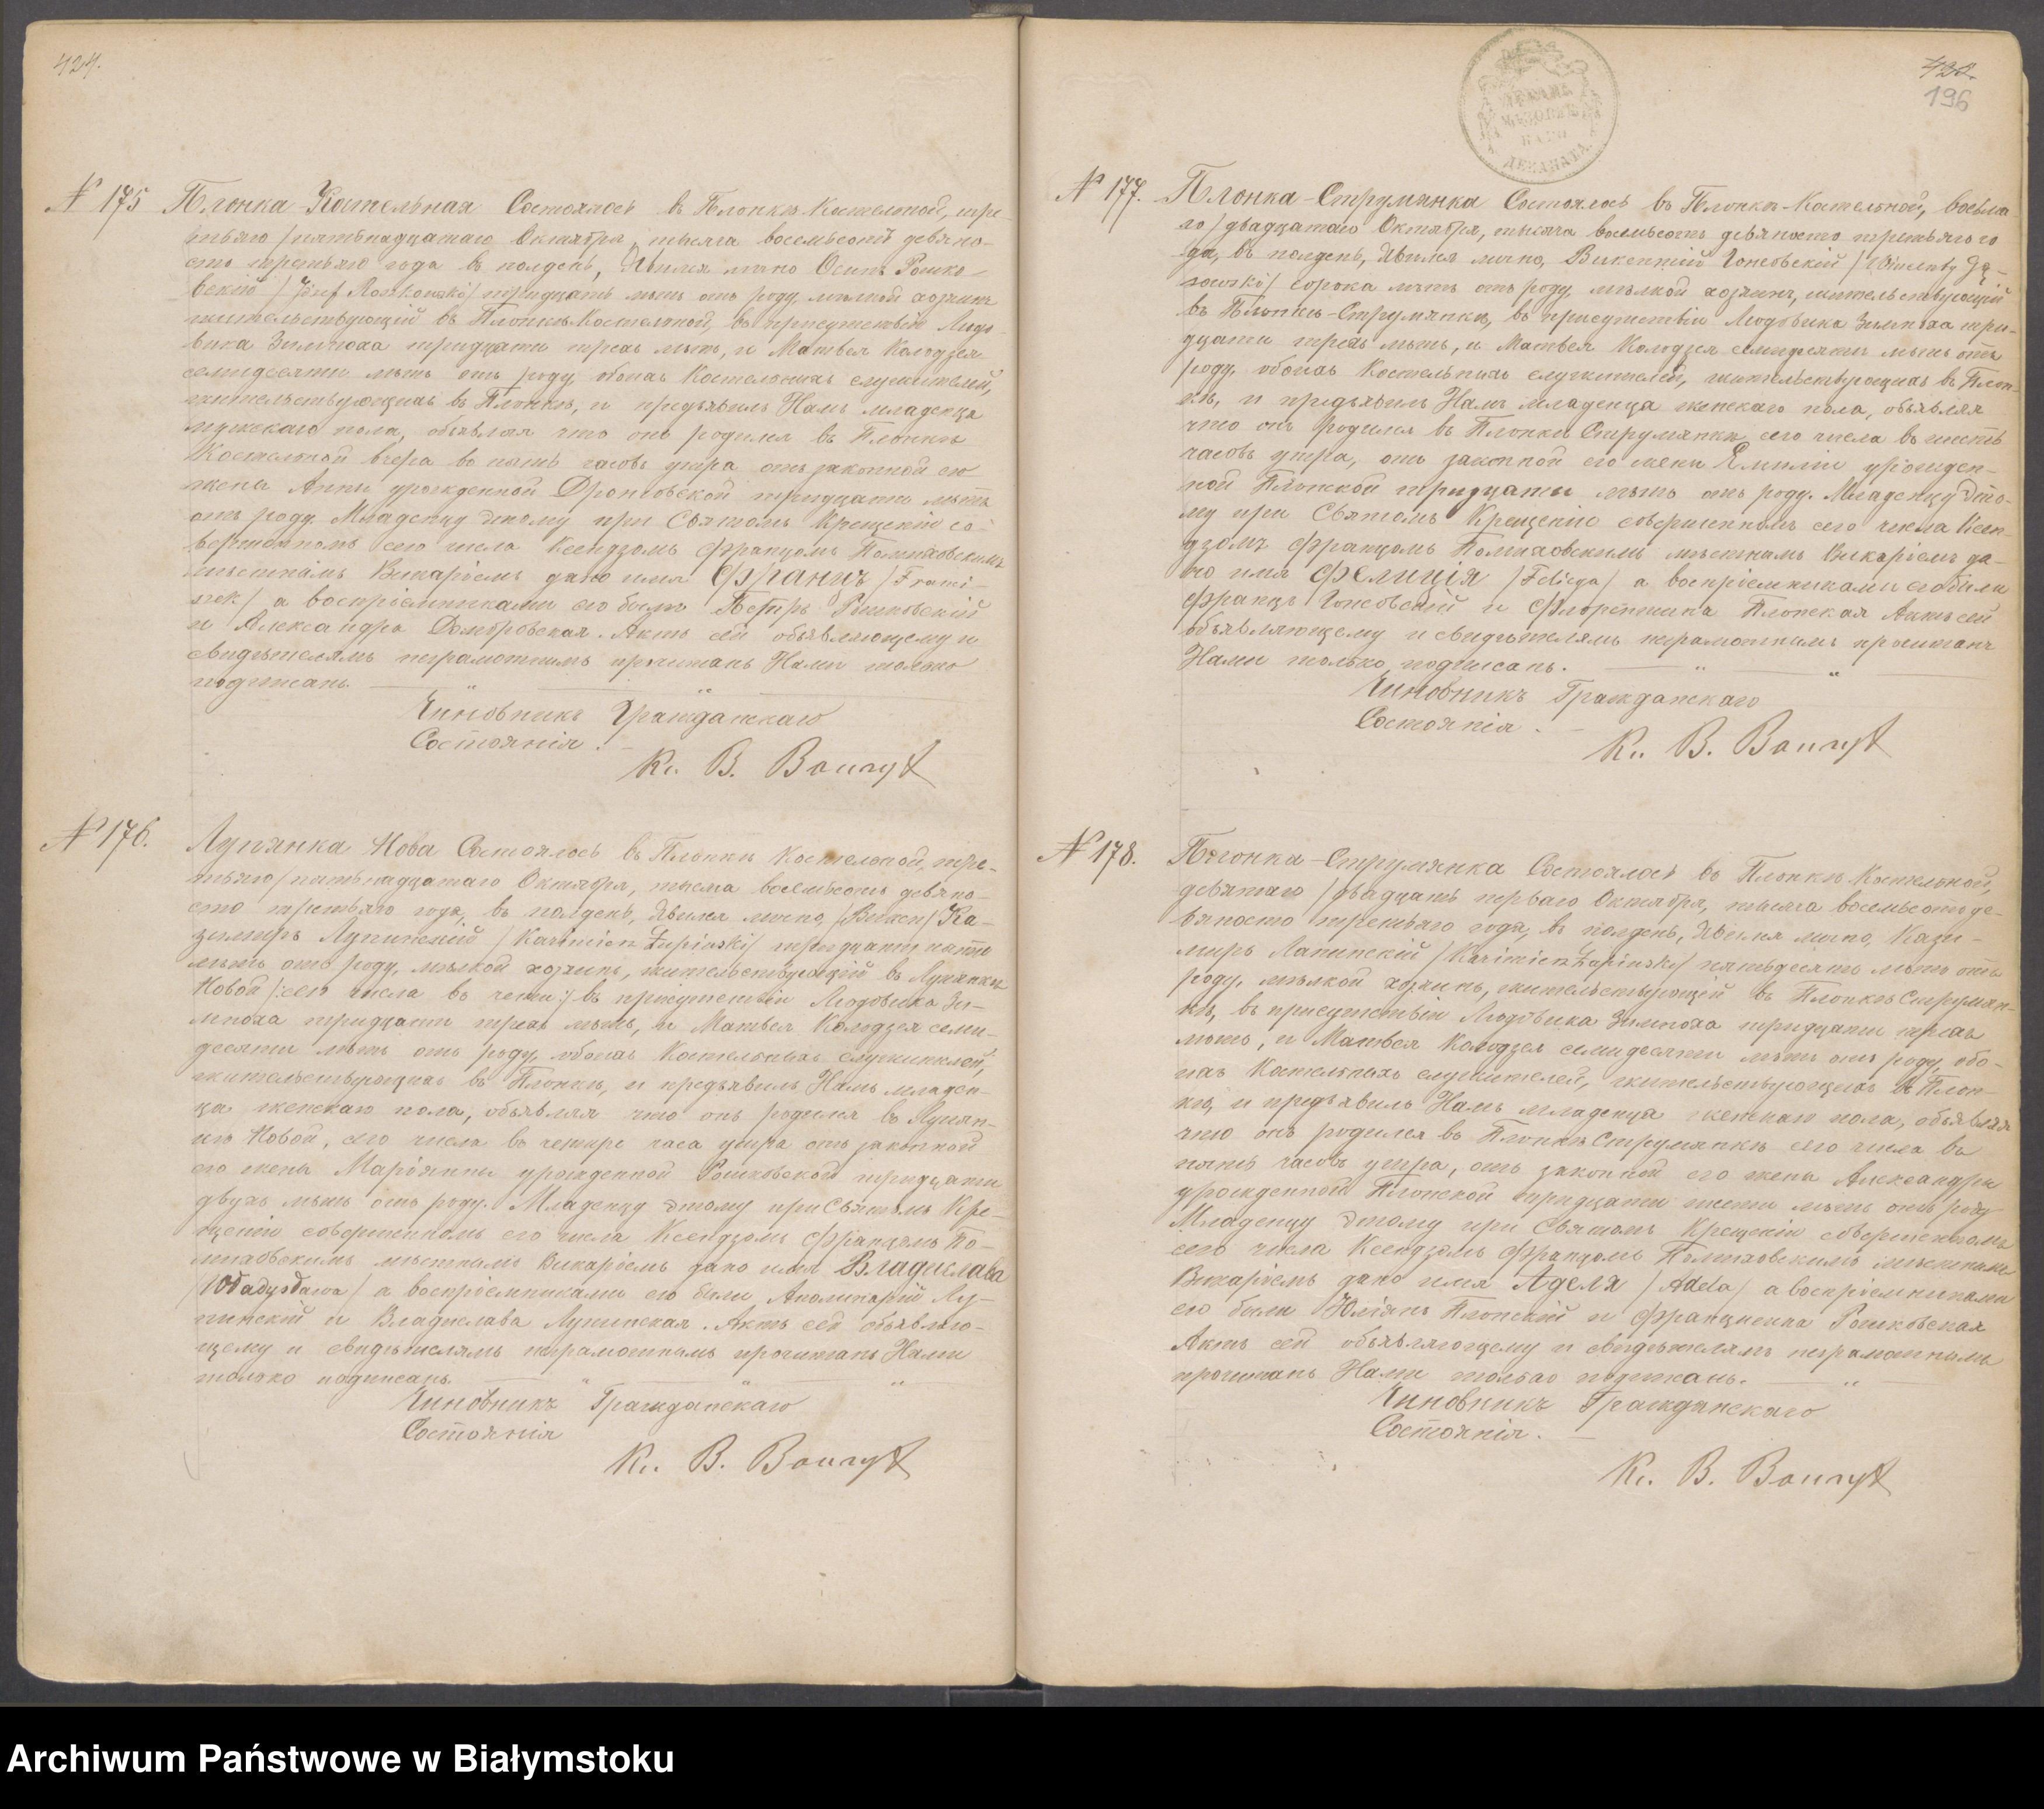 424.
№ 175 Плонка-Костельная Состоялось въ Плонкѣ-Костельной, тре-
тьяго /пятьнадцатаго Октября, тысяча восемьсотъ девяно-
сто третьяго года въ полдень, Явился лично Осипъ Рошко-
вскій /Józef Roszkowski/ тридцать лѣтъ отъ роду, мѣлкій хозяинъ
жительствующій въ Плонкѣ Костельной, въ присутствіи Людо-
вика Зимноха тридцати трехъ лѣтъ, и Матвея Колодзея
семидесяти лѣтъ отъ роду, обоихъ Костельныхъ служителей,
жительствующихъ въ Плонкѣ, и предъявилъ Намъ младенца
мужескаго пола, объявляя что онъ родился въ Плонкѣ
Костельной вчера въ пять часовъ утра отъ законной его
жены Анны урожденной тридцати лѣтъ
отъ роду. Младенцу этому при Святомъ Крещеніи со-
вершонномъ сего числа Ксендзомъ Францомъ
мѣстнымъ Викаріемъ дано имя Францъ /Franci-
szek/ а воспріемниками его были Петръ Рошковскій
и Александра Домбровская. Актъ сей объявляющему и
свидѣтелямъ неграмотнымъ прочитанъ Нами только
подписанъ.
Чиновникъ Гражданскаго
Состоянія.
Кс. В.
№ 176. Лупянка Нова Состоялось въ Плонкѣ Костельной, тре-
тьяго /пятьнадцатаго Октября, тысяча восемьсотъ девяно-
сто третьяго года, въ полдень, Явился лично, Ка-
зимиръ Лупинскій /Kazimierz Łupiński/ тридцати пяти
лѣтъ отъ роду, мѣлкой хозяинъ, жительствующій въ Лупянкѣ
Новой /:сего числа въ :/ въ присутствіи Людовика Зи-
мноха тридцати трехъ лѣтъ, и Матвея Колодзея семи-
десяти лѣтъ отъ роду, обоихъ Костельныхъ служителей,
жительствующихъ въ Плонкѣ, и предъявилъ Намъ младен-
ца женскаго пола, объявляя что онъ родился въ Лупян-
кѣ Новой, сего числа въ четыре часа утра отъ законной
его жены Маріянны урожденной Рошковской тридцати
двухъ лѣтъ отъ роду. Младенцу этому при Святомъ Кре-
щеніи совершенномъ сего числа Ксендзомъ Францомъ По-
мѣстнымъ Викаріемъ дано имя Владислава
/Władysława/ а воспріемниками его были Аполинарій Лу-
пинскій и Владислава Лупинская. Актъ сей объявляю-
щему и свидѣтелямъ неграмотнымъ прочитанъ Нами
только подписанъ.
Чиновникъ Гражданскаго
Состоянія
Кс. В.
196
ДЕКАНАТА
№ 177. Плонка-Струмянка Состоялось въ Плонкѣ-Костельной, восьма-
го /двадцатаго Октября, тысяча восемьсотъ девяносто третьяго го-
да, въ полдень, Явился лично, Викентій Гонсовскій /Wincenty Gą-
sowski/ сорока лѣтъ отъ роду, мѣлкой хозяинъ, жительствующій
въ Плонкѣ-Струмянкѣ, въ присутствіи Людовика Зимноха три-
дцати трехъ лѣтъ, и Матвея Колодзея семидесяти лѣтъ отъ
роду, обоихъ Костельныхъ служителей, жительствующихъ въ Плон-
кѣ, и предъявилъ Намъ младенца женскаго пола, объявляя
что онъ родился въ Плонкѣ Струмянкѣ сего числа въ шесть
часовъ утра, отъ законной его жены Емиліи урожден-
ной Плонской тридцати лѣтъ отъ роду. Младенцу это-
му при Святомъ Крещеніи совершенномъ сего числа Ксен-
дзомъ Францомъ мѣстнымъ Викаріемъ да-
но имя Фелиція /Felicya/ а воспріемниками его были
Францъ Гонсовскій и Флорентина Плонская Актъ сей
объявляющему и свидѣтелямъ неграмотнымъ прочитанъ
Нами только подписанъ.
Чиновникъ Гражданскаго
Состоянія.
Кс. В.
№ 178. Плонка-Струмянка Состоялось въ Плонкѣ-Костельной,
девятаго /двадцать перваго Октября, тысяча восемьсотъ де-
вяносто третьяго года, въ полдень, Явился лично, Кази-
миръ Лапинскій /Kazimierz Łapiński/ пятьдесятъ лѣтъ отъ
роду, мѣлкой хозяинъ, жительствующій въ Плонкѣ Струмян-
кѣ, въ присутствіи Людовика Зимноха тридцати трехъ
лѣтъ, и Матвея Колодзея семидесяти лѣтъ отъ роду, обо-
ихъ Костельныхъ служителей, жительствующихъ въ Плон-
кѣ, и предъявилъ Намъ младенца женскаго пола, объявляя
что онъ родился въ Плонкѣ Струмянкѣ сего числа въ
пять часовъ утра, отъ законной его жены Александры
урожденной Плонской тридцати шести лѣтъ отъ роду
Младенцу этому при Святомъ Крещеніи совершенномъ
сего числа Ксендзомъ Францомъ мѣстнымъ
Викаріемъ дано имя Аделя /Adela/ а воспріемниками
его были Юліянъ Плонскій и Францишка Рошковская
Актъ сей объявляющему и свидѣтелямъ неграмотнымъ
прочитанъ Нами только подписанъ.
Чиновникъ Гражданскаго
Состоянія.
Кс. В.
Archiwum Państwowe w Białymstoku